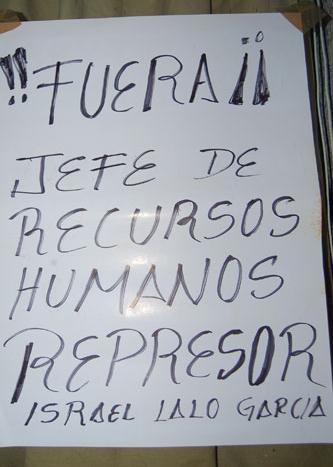 !!FUERA¡¡
JEFE DE
RECURSOS
HUMANOS
REPRESOR
ISRAEL LALO GARCIA